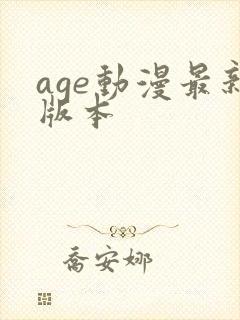 age動漫最新
版本
喬安娜